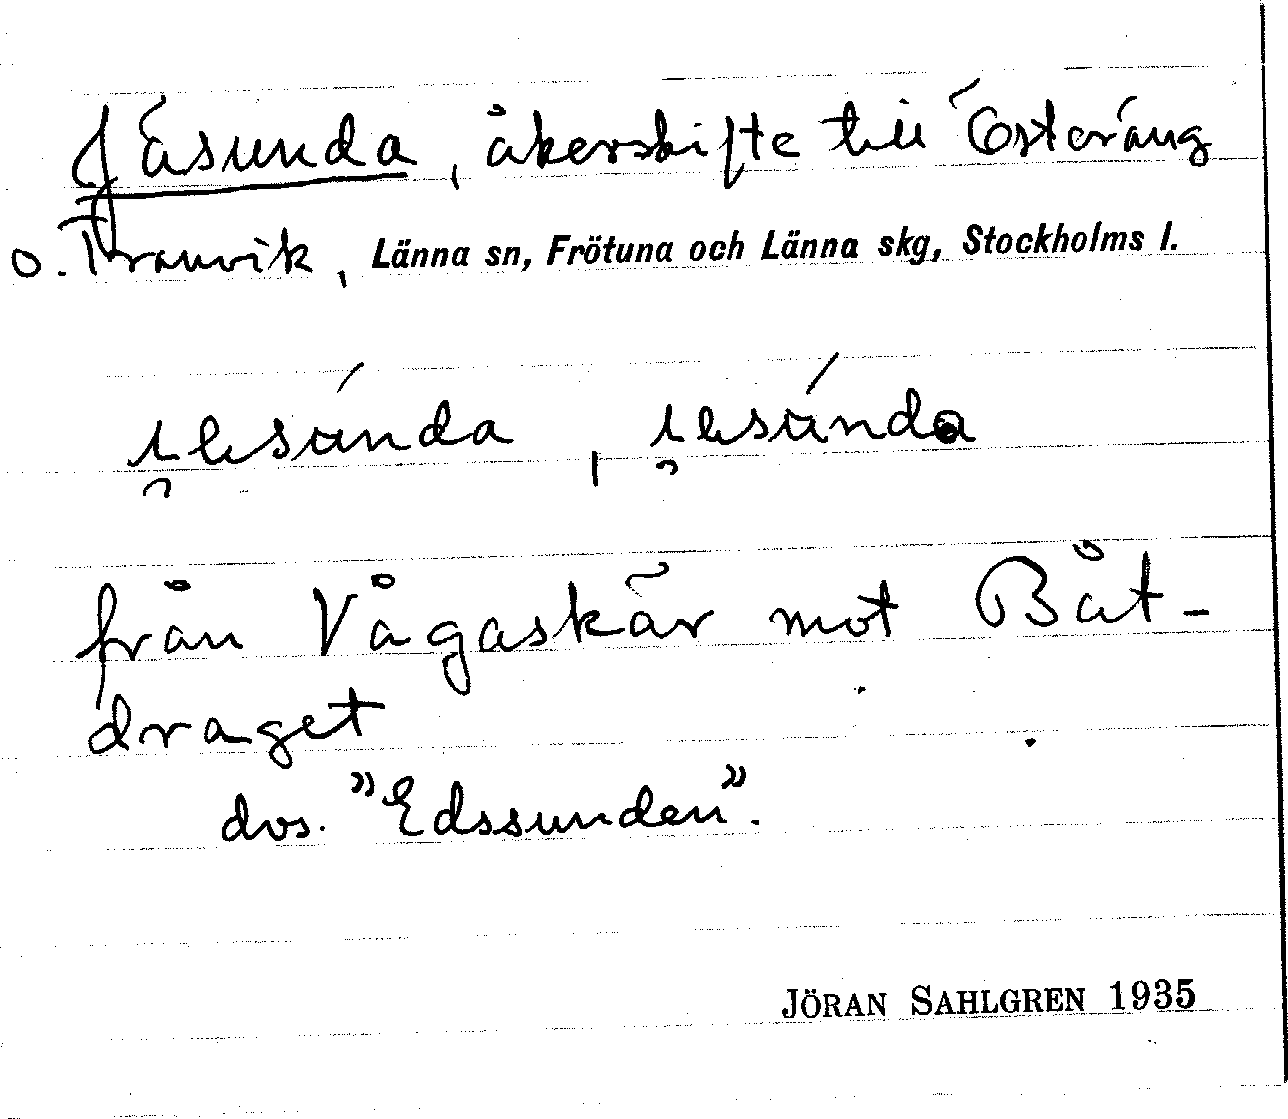 Jäsunda, åkerskifte till Österäng
o. Tranvik, Länna sn, Frötuna och Länna skg, Stockholms l.
från Vågaskär mot Båt-
draget
dvs. "Edssunden".
JÖRAN SAHLGREN 1935